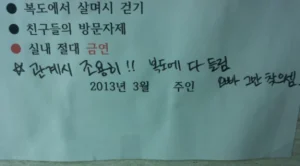 ● 복도에서 살며시 걷기
● 친구들의 방문자제
● 실내 절대 금연
☆ 관계시 조용히!! 복도에 다 들림
2013년 3월 주인 오빠 그만 찾으셈